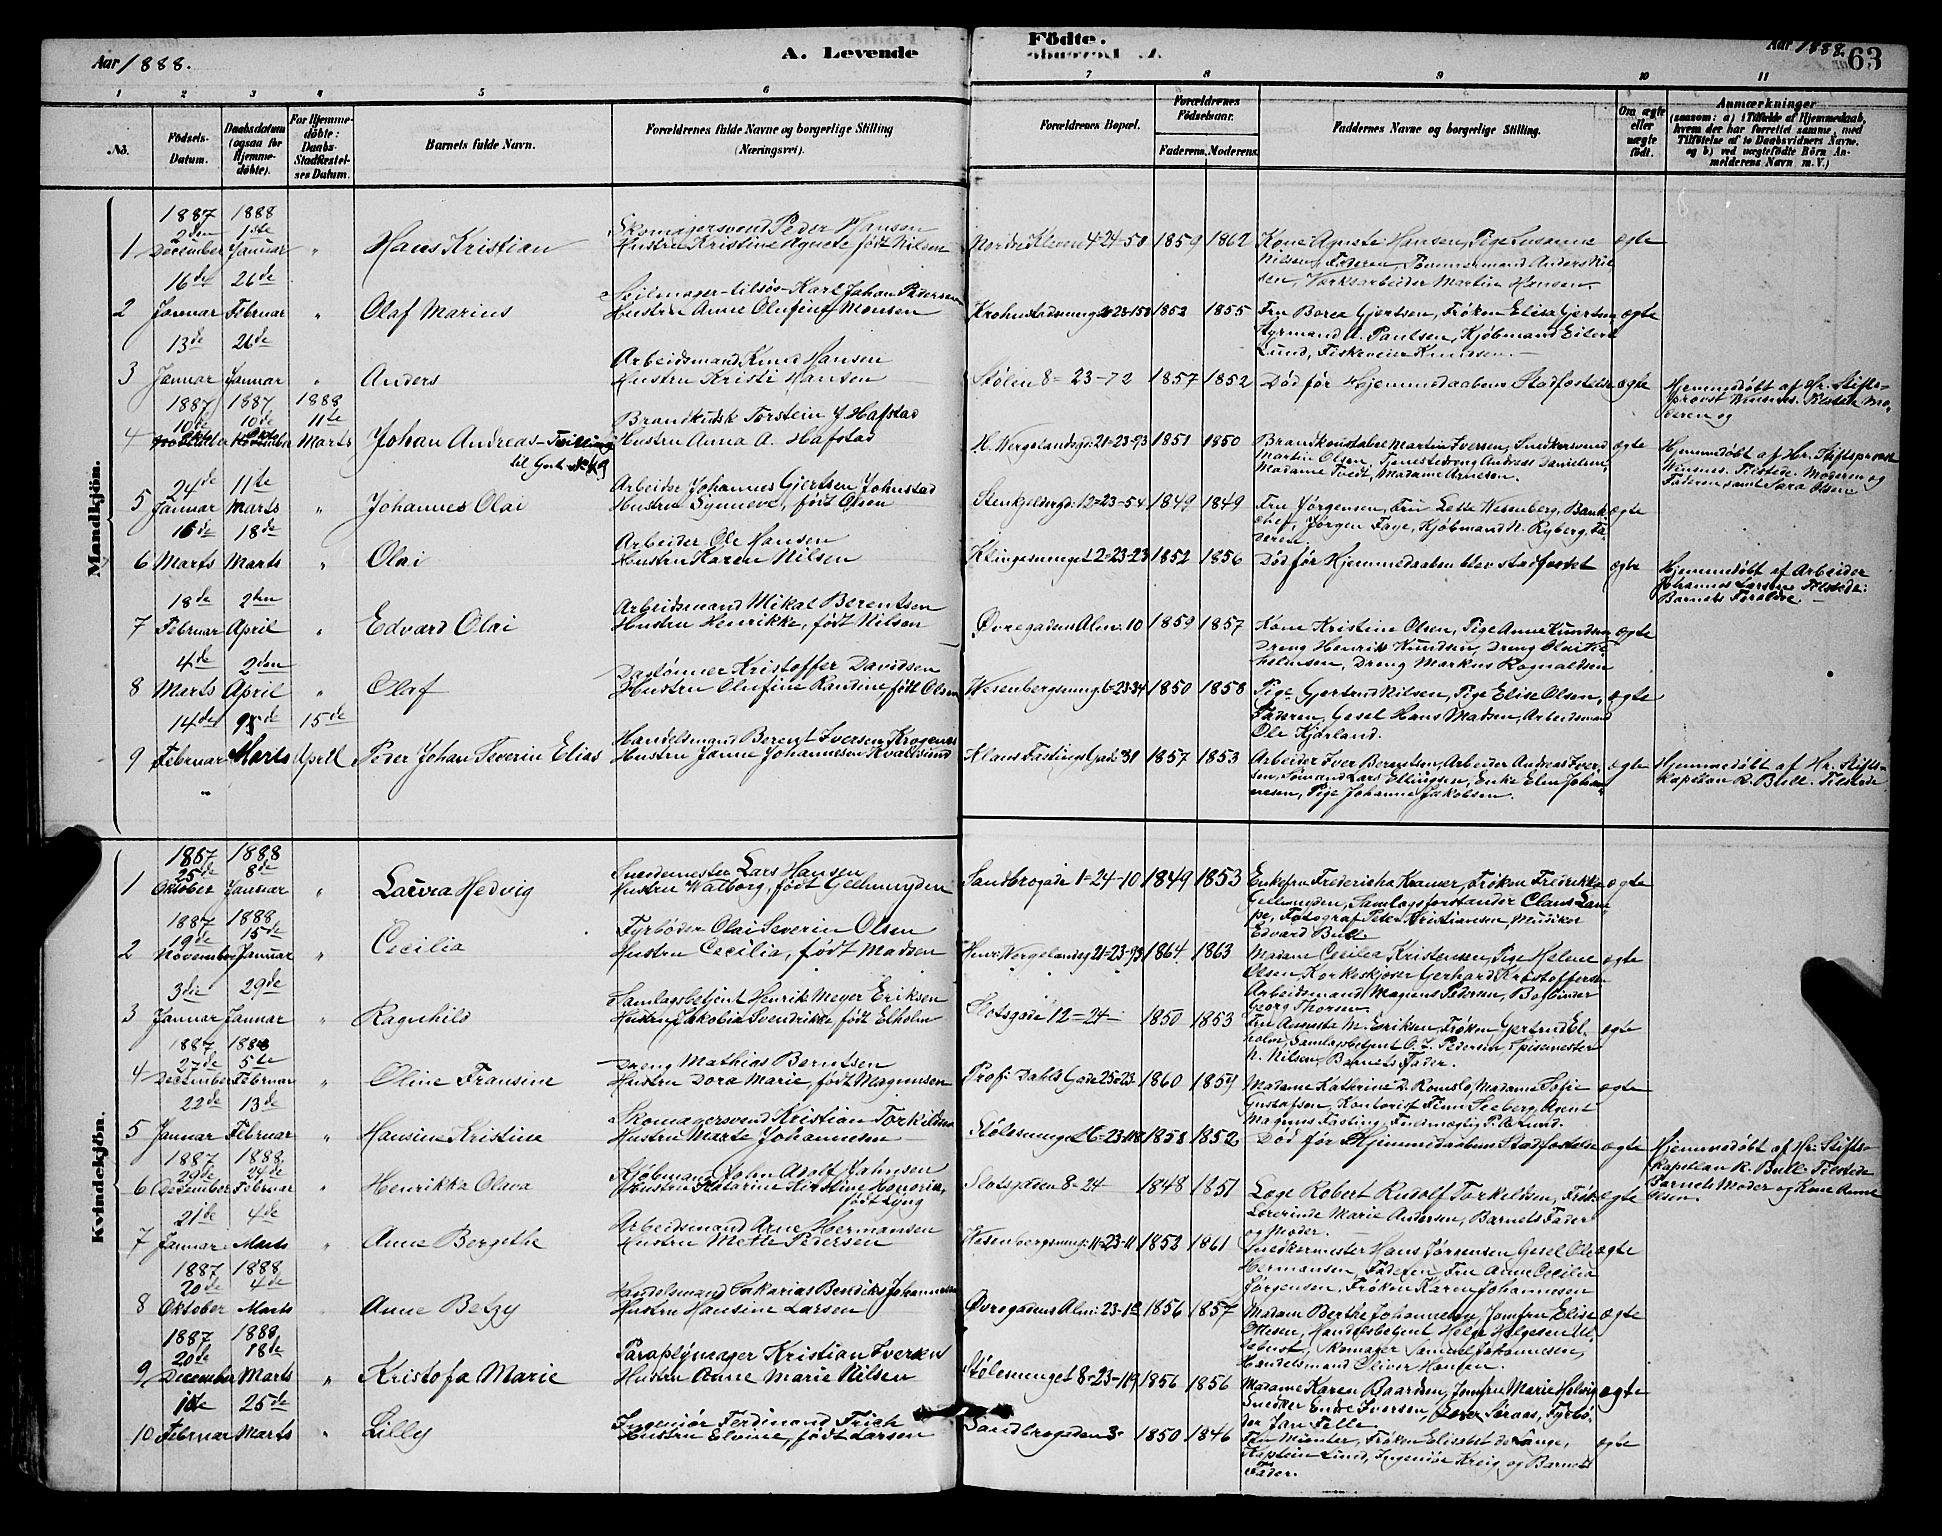 Aar 1888.
A. Levende
Födte.
Aar 1888.
63
1 2 3 4 5 6 7 8 9 10 11
No.
Födsels-Datum.
Daabsdatum (ogsaa for Hjemme-döbte).
For Hjemme-döbte: Daabs-Stadfæstel-ses Datum.
Barnets fulde Navn.
Forældrenes fulde Navne og borgerlige Stilling (Næringsvei).
Forældrenes Bopæl.
Forældrenes Födselsaar.
Faderens. Moderens.
Faddernes Navne og borgerlige Stilling.
Om ægte eller uægte födt.
Anmærkninger
(saasom: a) i Tilfælde af Hjemmedaab, hvem der har forrettet samme, med Tilföielse af to Daabsvidners Navne, og b) ved uægtefödte Börn An-melderens Navn m. V.)
Mandkjön.
1887 1888
2den 1ste Skomagersvend Peder Hansen
1 December Januar " Hans Kristian Hustru Kristine Agnete født Nilsen Nordre Kleven 4-24-50 1859 1862 Kone Agnete Hansen, Pige Susanne ægte
Nilsen, Faderen, Tømmermand Anders Nil-
sen, Værksarbeider Martin Hansen
16de 26de Seilmager-tilsøs-Karl Johan Pedersen
2 Januar Februar " Olaf Marius Hustru Anne Olufine Monsen 1852 1855 Fru Borea Gjertsen, Frøken Elisa Gjertsen ægte
Styrmand A. Paulsen, Kjøbmand Eilert
Lund, Fiskeveier Knudsen.
13de 26de Arbeidsmand Knud Hansen
3 Januar Januar " Anders Hustru Kristi Hansen Stølen 8-23-72 1857 1852 Død før Hjemmedaabens Stadfæstelse ægte Hjemmedøbt af Hr. Stifts-
provst
1887 1887 1888
10de 10de 11te Brandkudsk Torstein J. Hafstad
4 Marts Johan Andreas-Tvilling Hustru Anna A. Hafstad H. Wergelandsgd. 21-23-93 1851 1850 Brandkonstabel Martin Iversen, Snedkersvend ægte Hjemmedøbt af Hr. Stiftsprovst
Martin Olsen, Tjenestedreng Andreas Danielsen,
Madame Tvedt, Madame Arnesen.
Tilstede: Moderen og
Faderen, samt Sara Olsen
24de 11te Arbeider Johannes Gjertsen Johnstad
5 Januar Marts " Johannes Olai Hustru Synneve, født Olsen Stenkjeldergd. 12-23-54 1849 1849 Fru Jørgensen, Fru Lette Wesenberg, Bank- ægte
chef, Jørgen Faye, Kjøbmand N. Ryberg, Fa-
deren
16de 18de Arbeider Ole Hansen
6 Marts Marts " Olai Hustru Karen Nilsen Klingesmuget 2-23-23 1852 1856 Død før Hjemmedaaben blev stadfæstet ægte Hjemmedøbt af Arbeider
Johannes Larsen Tilstede:
Barnets Forældre.
18de 2den Arbeidsmand Mikal Berentsen
7 Februar April " Edvard Olai Hustru Henrikke, født Nilsen Øvregaden Alm: 10 1859 1857 Kone Kristine Olsen, Pige Anne Knudsen ægte
Dreng Henrik Knudsen, Dreng
Dreng Markus Rognaldsen
4de 2den Kristoffer Davidsen
8 Marts April " Olaf Hustru Olufine Randine født Olsen Wesenbergsmug 6-23-34 1850 1858 Pige Gjertrud Nilsen, Pige Elise Olsen, ægte
Faderen, Gesel Hans Madsen, Arbeidsmand
Ole Kjørland.
14de 15de Handelsmand Berent Iversen Krogenes
9 Februar Marts April Peder Johan Severin Elias Hustru Janne Johannesen Kvalsund Klaus Fastings Gade 31 1857 1853 Arbeider Iver Berntsen, Arbeider Andreas Iver- ægte Hjemmedøbt af Hr. Stifts-
sen, Sømand Lars Ellingsen, Enke Elen Johan-
nesen, Pige Johanne Jakobsen.
kapellan R. Bull. Tilstede
Kvindekjön.
1887 1888
25de 8de Lars Hansen
1 Oktober Januar " Laura Hedvig Hustru Walborg, født Gellmuyden Sandbrogade 1-24-10 1849 1853 Enkefru Fredericha Kramer, Frøken Fredrikke ægte
Gellmuyden, Samlagsforstander Claus Lam-
pe, Fotograf Peter Kristiansen, Musiker
Edvard Bull.
1887 1888
19de 15de Fyrbøder Olai Severin Olsen
2 November Januar " Cecilia Hustru Cecilia, født Madsen Henr. Wergelandsg 21-23-93 1864 1863 Madame Cecilia Kristensen, Pige Helene ægte
Olsen, Korkeskjærer Gerhard Kristoffersen
Arbeidsmand Magnus Pedersen, Bogbinder
Georg Thorsen.
3die 29de Samlagsbetjent Henrik Meyer Eriksen
3 Januar Januar " Ragnhild Hustru Jakobia Svendrikke født Elholm Slotsgade 12-24- 1850 1853 Fru Augusta M. Eriksen, Frøken Gjertrud El- ægte
holm, Samlagsbetjent O. Z. Pedersen, Spisemester
N. Nilsen, Barnets Fader.
1887 1888
27de 5te Dreng Mathias Berntsen
4 December Februar " Oline Fransine Hustru Dora Marie, født Magnusen Prof: Dahls Gade 25-23 1860 1859 Madame Katerine D. Romslo, Madame Sofie ægte
Gustafson, Kontorist Finn Seeberg, Agent
Magnus Fasting, Fuldmægtig P. A. Lund.
22de 13de Skomagersvend Kristian Torkildsen
5 Januar Februar " Hansine Kristine Hustru Marte Johannesen Stølesmuget 16-23-118 1858 1852 Død før Hjemmedaabens Stadfæstelse ægte Hjemmedøbt af Hr. Stifts-
kapellan R. Bull. Tilstede
Barnets Moder og Kone Anne
Olsen.
1887 1888.
29de 24de Kjøbmand John Adolf Jahnsen
6 December Februar " Henrikka Olava Hustru Katarine Kirstine Honoria, Slotsgaden 8-24 1848 1851 Robert Rudolf Torkeldsen, ægte
født Lyng
Marie Andersen, Barnets Fader
og Moder.
21de 4de Arbeidsmand Arne Hermansen
7 Januar Marts " Anne Bergithe Hustru Mette Pedersen Wesenbergsmug: 11-23-11 1852 1861 Snedkermester Hans Jørgensen, Gesel Ole ægte
Hermansen, Faderen, Fru Anne Cecilia
Jørgensen, Frøken Karen Johannesen
1887 1888
20de 4de Handelsmand Sakarias Bendiks Johannesen
8 Oktober Marts " Anne Betzy Hustru Hansine Larsen Øvregadens Alm: 23-12 1856 1857 Madam Berthe Johannesen, Jomfru Elise ægte
Handelsbetjent Helge Helgesen
Skomager Samuel Johannesen,
Handelsmand Oliver Hansen.
1887 1888
20de 18de Paraplymager Kristian Iversen
9 December Marts " Kristofa Marie Hustru Anne Marie Nilsen Stølesmuget 8-23-119 1856 1856 Madame Karen Baardsen, Jomfru Marie Helvig ægte
Snedker Ende Iversen, Fyrbø-
der Jan Telle
1ste 25de Ingeniør Ferdinand Frich
10 Februar Marts " Lilly Hustru Elvine, født Larsen Sandbrogaden 3- 1850 1846 Fru Münter, Frøken Elisabet de Lange, ægte
Kaptein Lund, Ingeniør Kreig og Barnets
Fader.